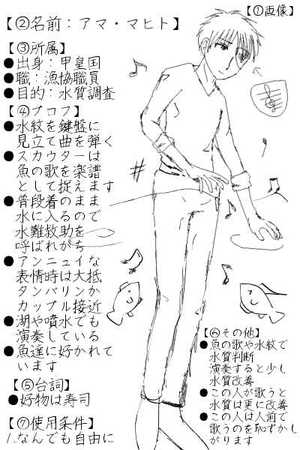 【①画像】
【②名前：アマ・マヒト】
【③所属】
●出身：甲皇国
●職：漁協職員
●目的：水質調査
【④プロフ】
●水紋を鍵盤に
見立て曲を弾く
●スカウターは
魚の歌を楽譜
として捉えます
●普段着のまま
水に入るので
水難救助を
呼ばれがち
●アンニュイな
表情時は大抵
タンバリンか
カップル接近
●湖や噴水でも
演奏している
●魚達に好かれて
います
【⑤台詞】
●好物は寿司
【⑥その他】
●魚の歌や水紋で
水質判断
演奏すると少し
水質改善
●この人が歌うと
水質は更に改善
●この人は人前で
歌うのを恥ずかし
がります
【⑦使用条件】
1.なんでも自由に